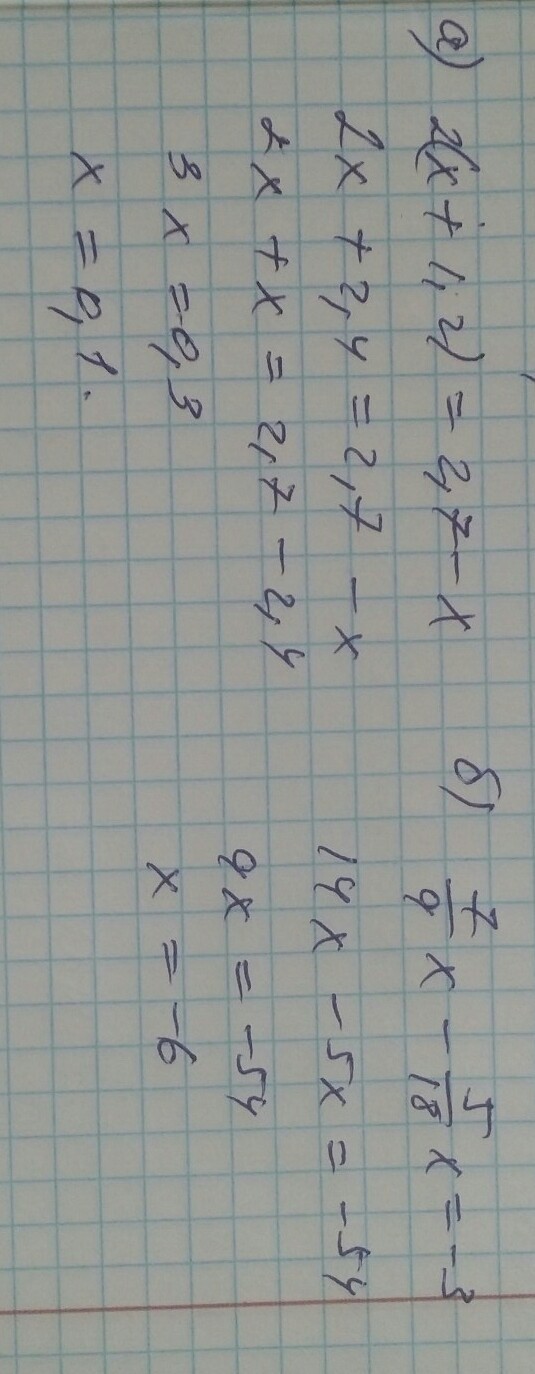 а) 2(x + 1,2) = 2,7 - x
2x + 2,4 = 2,7 - x
2x + x = 2,7 - 2,4
3x = 0,3
x = 0,1.
б) 7/9 x - 5/18 x = -3
14x - 5x = -54
9x = -54
x = -6